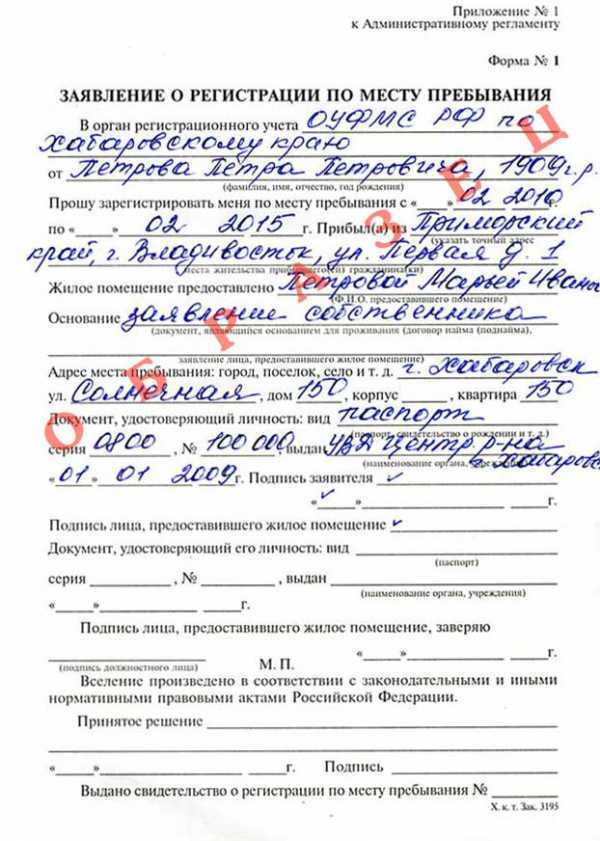 Приложение № 1
к Административному регламенту
Форма № 1
ЗАЯВЛЕНИЕ О РЕГИСТРАЦИИ ПО МЕСТУ ПРЕБЫВАНИЯ
В орган регистрационного учета ОУФМС РФ по
Хабаровскому краю
от Петрова Петра Петровича, 1909г.р.
(фамилия, имя, отчество, год рождения)
Прошу зарегистрировать меня по месту пребывания с «__» 02 2010г.
по «__» 02 2015 г. Прибыл(а) из Приморский
(указать точный адрес
край, г. Владивосток, ул. Первая д. 1
места жительства прибывшего(ей) гражданина(ки)
Жилое помещение предоставлено Петровой Марьей Ивано
(Ф.И.О. предоставившего помещение)
Основание заявление собственника
(документ, являющийся основанием для проживания (договор найма (поднайма),
заявление лица, предоставившего жилое помещение)
Адрес места пребывания: город, поселок, село и т. д. г. Хабаровск
ул. Солнечная, дом 150, корпус ____, квартира 150
Документ, удостоверяющий личность: вид паспорт
(паспорт, свидетельство о рождении и т. д.)
серия 0800, № 100 000, выдан УВД Центр. р-на
(наименование органа, учреждения)
г. Хабаровс
«01» 01 2009г. Подпись заявителя ✓
«✓» ____ г.
Подпись лица, предоставившего жилое помещение ✓
Документ, удостоверяющий его личность: вид
(паспорт)
серия ____, № ____, выдан
(наименование органа, учреждения)
«__» ____ г.
Подпись лица, предоставившего жилое помещение, заверяю
«__» ____ г.
(подпись должностного лица) М. П.
Вселение произведено в соответствии с законодательными и иными
нормативными правовыми актами Российской Федерации.
Принятое решение
«__» ____ г. Подпись
Выдано свидетельство о регистрации по месту пребывания №
Х. к. т. Зак. 3195
ОБРАЗЕЦ